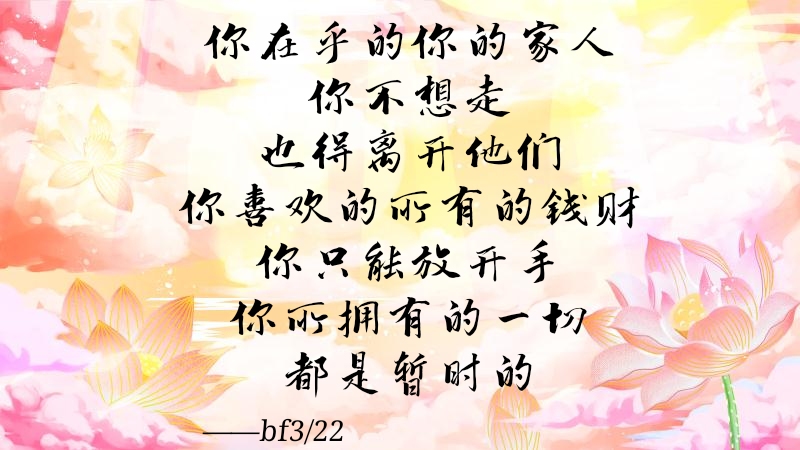 你在乎的你的家人
你不想走
也得离开他们
你喜欢的所有的钱财
你只能放开手
你所拥有的一切
都是暂时的
——bf3/22